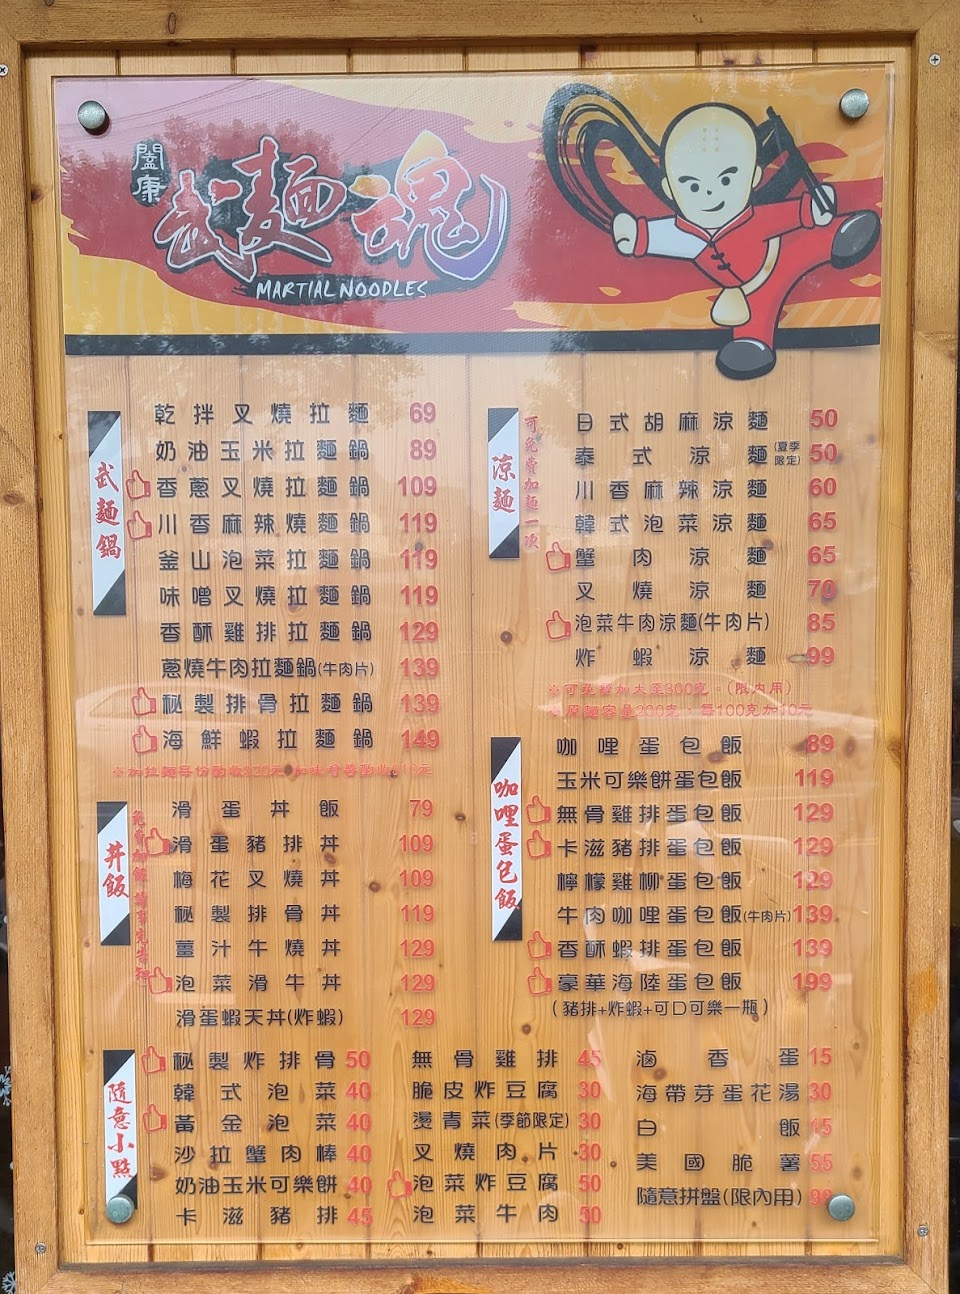 闔康
武麵魂
MARTIAL NOODLES
武麵鍋
乾拌叉燒拉麵 69
奶油玉米拉麵鍋 89
香蔥叉燒拉麵鍋 109
川香麻辣燒麵鍋 119
釜山泡菜拉麵鍋 119
味噌叉燒拉麵鍋 119
香酥雞排拉麵鍋 129
蔥燒牛肉拉麵鍋(牛肉片) 139
祕製排骨拉麵鍋 139
海鮮蝦拉麵鍋 149
丼飯
滑蛋丼飯 79
滑蛋豬排丼 109
梅花叉燒丼 109
祕製排骨丼 119
薑汁牛燒丼 129
泡菜滑牛丼 129
滑蛋蝦天丼(炸蝦) 129
涼麵
可免費加麵一次
日式胡麻涼麵 50
泰式涼麵(夏季限定) 50
川香麻辣涼麵 60
韓式泡菜涼麵 65
蟹肉涼麵 65
叉燒涼麵 70
泡菜牛肉涼麵(牛肉片) 85
炸蝦涼麵 99
※可免費加大至300克。(限內用)
※原麵容量200克，每100克加10元
咖哩蛋包飯
咖哩蛋包飯 89
玉米可樂餅蛋包飯 119
無骨雞排蛋包飯 129
卡滋豬排蛋包飯 129
檸檬雞柳蛋包飯 129
牛肉咖哩蛋包飯(牛肉片) 139
香酥蝦排蛋包飯 139
豪華海陸蛋包飯 199
(豬排+炸蝦+可口可樂一瓶)
隨意小點
祕製炸排骨 50
韓式泡菜 40
黃金泡菜 40
沙拉蟹肉棒 40
奶油玉米可樂餅 40
卡滋豬排 45
無骨雞排 45
脆皮炸豆腐 30
燙青菜(季節限定) 30
叉燒肉片 30
泡菜炸豆腐 50
泡菜牛肉 50
滷香蛋 15
海帶芽蛋花湯 30
白飯 15
美國脆薯 55
隨意拼盤(限內用)